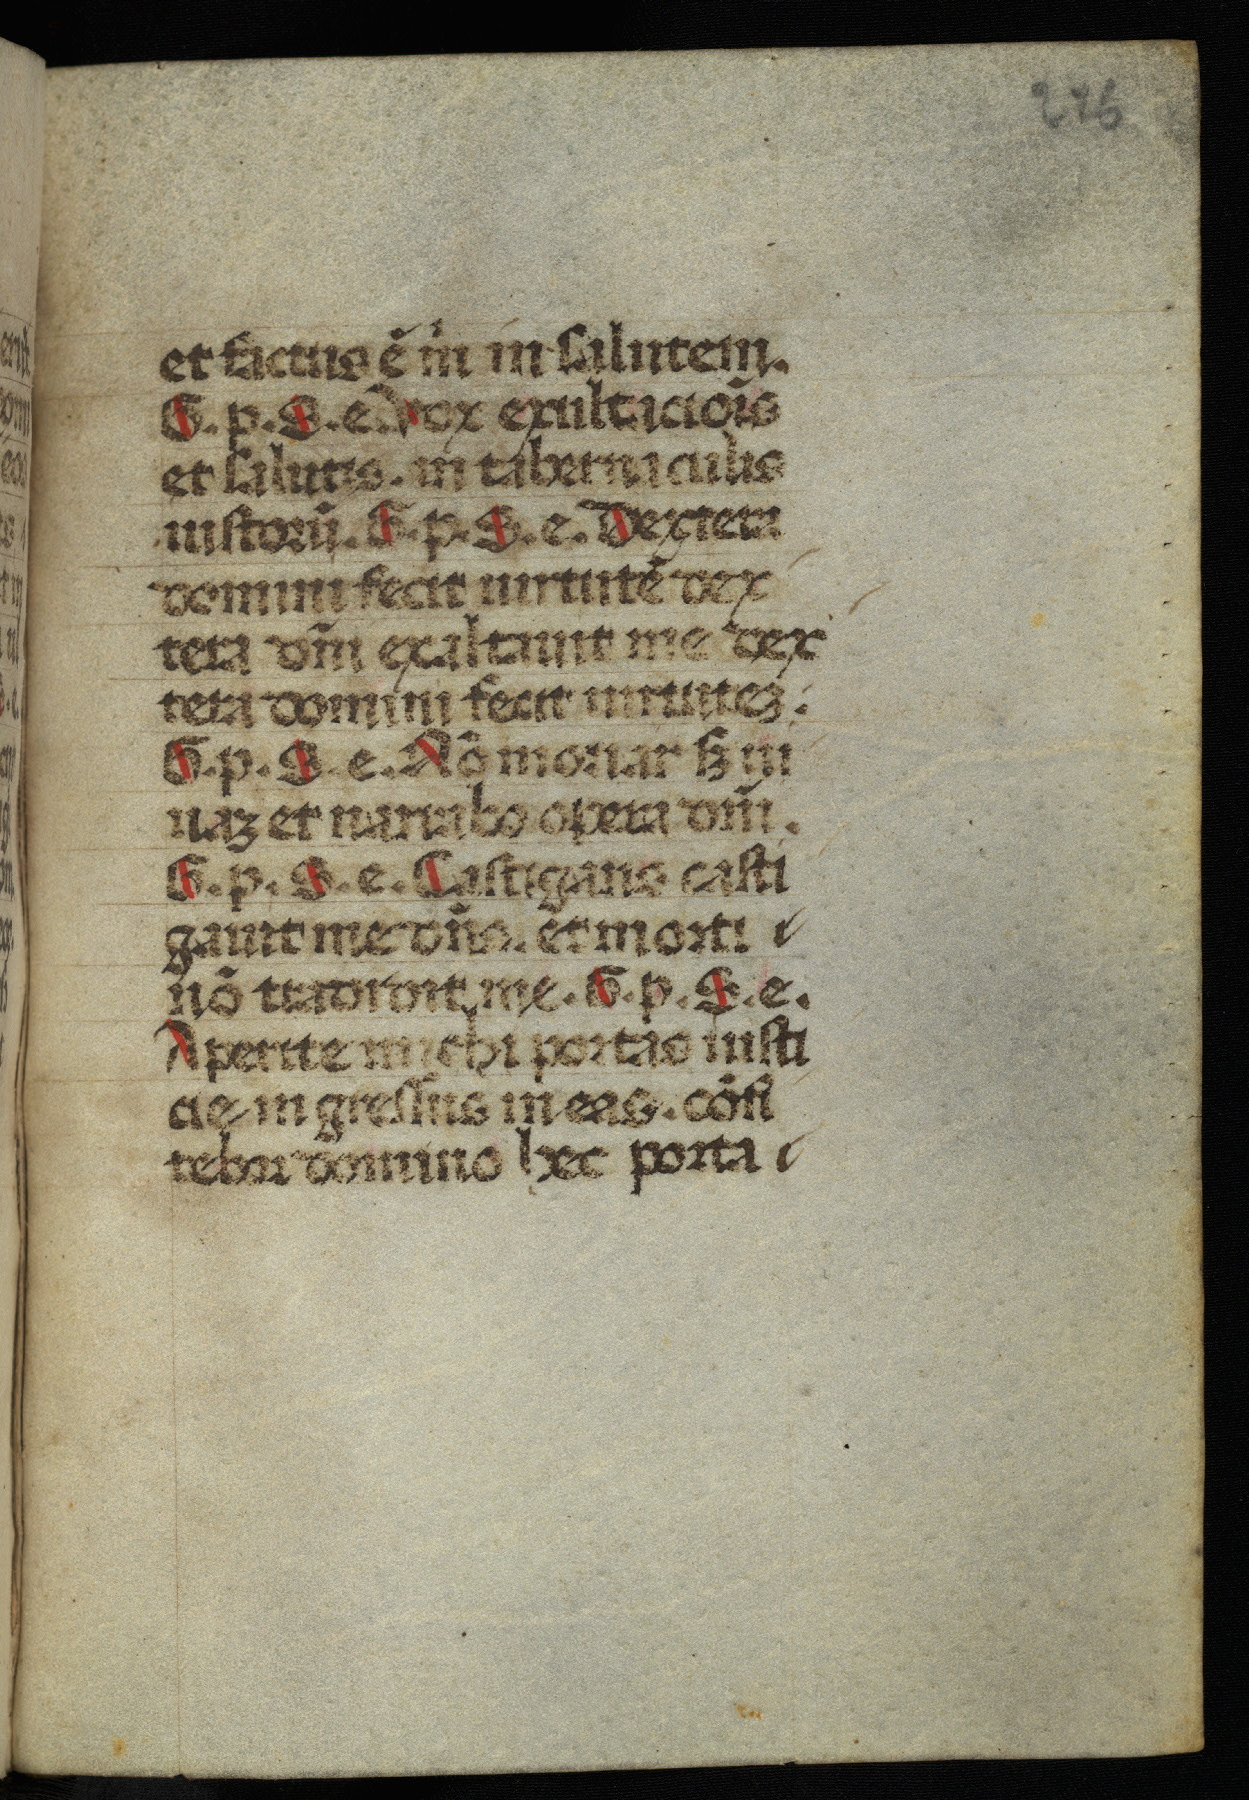 276
et factus ē m̄ in salutem.
S. p. S. e. Vox exultaciōis
et salutis. in tabernaculis
iustorū. S. p. S. e. Dextera
domini fecit uirtutē dex
tera dn̄i exaltauit me dex
tera domini fecit uirtutez.
S. p. S. e. Nō moriar sz ui
uaz et narrabo opera dn̄i.
S. p. S. e. Castigans casti
gauit me dn̄s. et morti
nō tradidit me. S. p. S. e.
Aperite michi portas iusti
cie ingressus in eas. cōfi
tebor domino hec porta